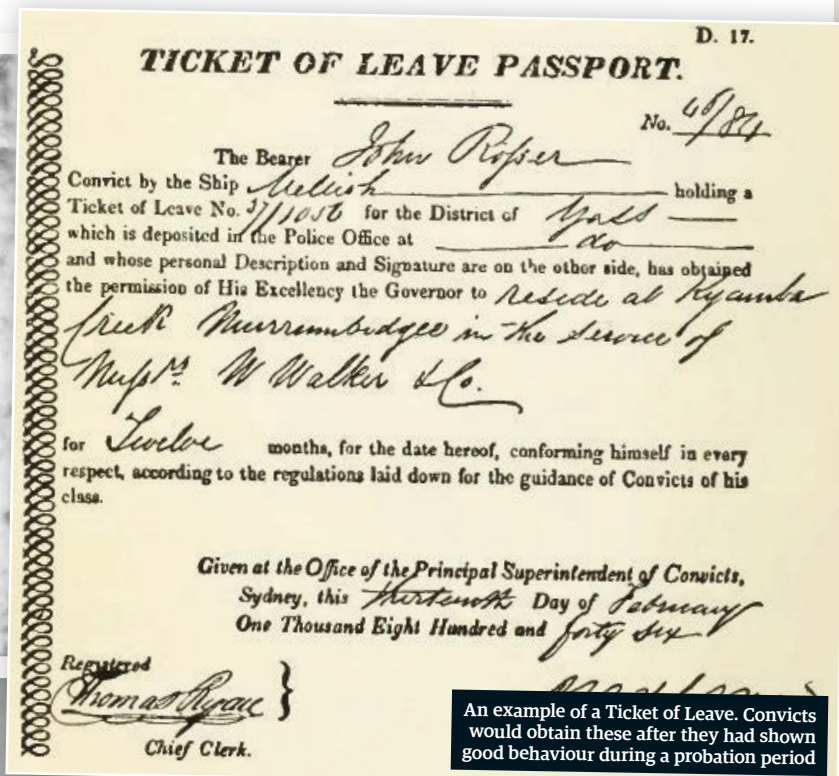 D. 17.
TICKET OF LEAVE PASSPORT.
No. 46/84
The Bearer John Rosser
Convict by the Ship Mellish holding a
Ticket of Leave No. 37/1056 for the District of Yass
which is deposited in the Police Office at do
and whose personal Description and Signature are on the other side, has obtained
the permission of His Excellency the Governor to reside at Kyamba
Creek Murrumbidgee in the service of
Messrs. W Walker & Co.
for Twelve months, for the date hereof, conforming himself in every
respect, according to the regulations laid down for the guidance of Convicts of his
class.
Given at the Office of the Principal Superintendent of Convicts,
Sydney, this thirteenth Day of February
One Thousand Eight Hundred and forty six
Registered
Thomas Ryan }
Chief Clerk.
An example of a Ticket of Leave. Convicts
would obtain these after they had shown
good behaviour during a probation period